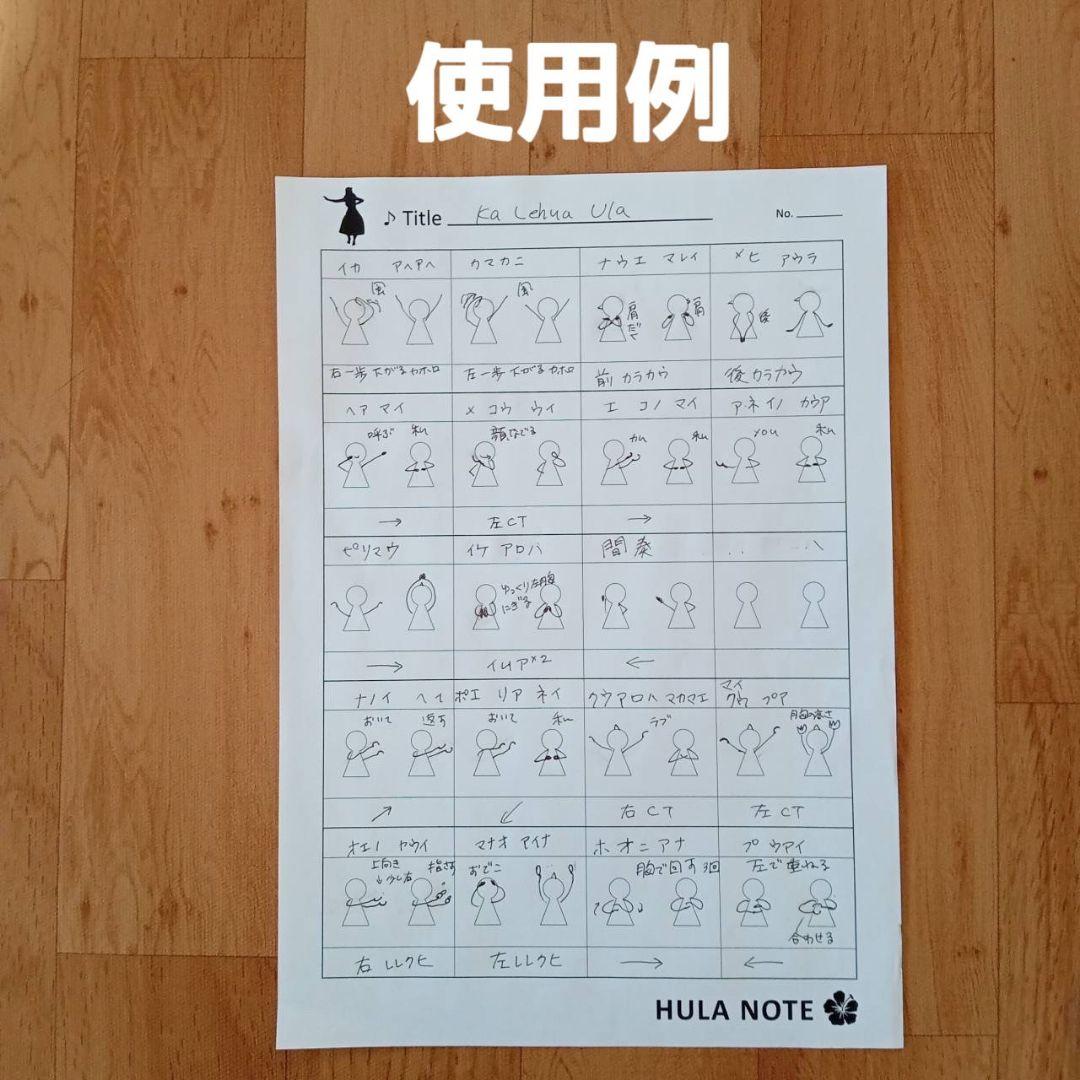 使用例
♪ Title Ka Lehua Ula
No.
イカ アヘアヘ ウマカニ ナウエ マレイ メヒ アウラ
風 風 肩だて 肩 後
右一歩下がるカホロ 左一歩下がるカホロ 前カラカウ 後カラカウ
ヘア マイ メ コウ ウイ エ コノ マイ ア ネイノ カウア
呼ぶ 私 顔なでる カム 私 you 私
→ 左CT →
ピリマウ イケ アロハ 間奏
ゆっくり左胸
にぎる
→ ←
ナノイ ポエ リア ネイ クウアロハ マカマエ マイ
クウ プア
おいて 返す おいて 私 ラブ 胸の高さ
↗ ↙ 右CT 左CT
マナオ アイナ ホ オニ アナ プ ウアイ
上向き 指さす おでこ 胸で回す3回 左で重ねる
合わせる
→ ←
HULA NOTE